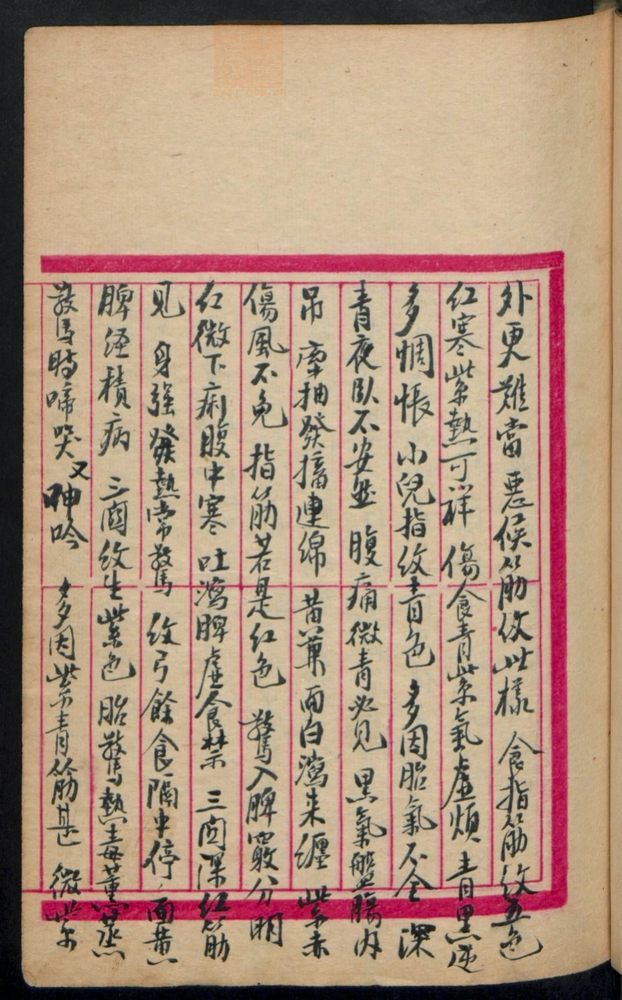 外更难當 悪候筋纹此樣 食指筋纹五色
红寒紫熱可詳 傷食青紫氣虚煩 青黑逆
多惆悵 小兒指纹青色 多因胎氣不全 深
青夜卧不安然 腹痛微青必見 黑氣盤腸内
吊 抽發搐連綿 黄兼面白瀉来纏 紫赤
傷風不免 指筋若是红色 驚入脾竅分明
红微下痢腹中寒 吐瀉脾虚食禁 三関深红筋
見 身強發熱常驚 纹弓餘食隔中停 面黄
脾经積病 三関纹生紫色 胎驚熱毒薰蒸
驚時啼哭又呻吟 多因紫青筋甚 微紫